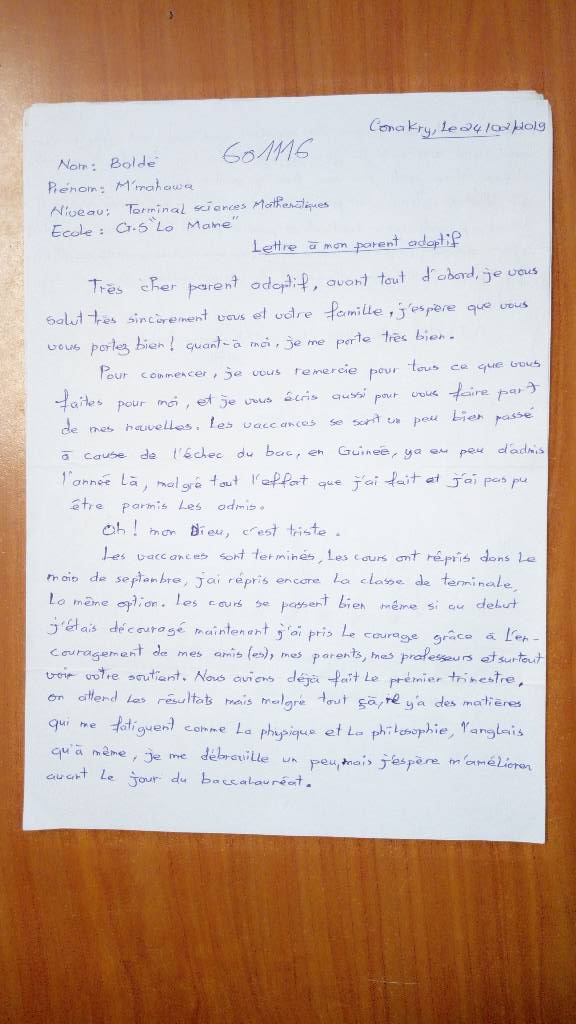 Conakry, Le 24/02/2019
601116
Nom: Baldé
Prénom: M'mahawa
Niveau: Terminal sciences Mathématiques
Ecole: G.S "La Marne"
Lettre à mon parent adoptif
Très cher parent adoptif, avant tout d'abord, je vous
salut très sincèrement vous et votre famille, j'espère que vous
vous portez bien! quant-à moi, je me porte très bien.
Pour commencer, je vous remercie pour tous ce que vous
faites pour moi, et je vous écris aussi pour vous faire part
de mes nouvelles. Les vaccances se sont un peu bien passé
à cause de l'échec du bac, en Guineé, ya eu peu d'admis
l'année Là, malgré tout l'effort que j'ai fait et j'ai pas pu
être parmis Les admis.
Oh! mon Dieu, c'est triste.
Les vaccances sont terminés, Les cours ont répris dans Le
mois de septenbre, j'ai répris encore La classe de terminale,
La même option. Les cours se passent bien même si au debut
j'étais découragé maintenant j'ai pris Le courage grâce à L'en-
couragement de mes amis(es), mes parents, mes professeurs et surtout
votre soutient. Nous avions déjà fait Le prémier trimestre,
on attend Les résultats mais malgré tout çà, il y'a des matières
qui me fatiguent comme La physique et La philosophie, l'anglais
qu'à même, je me débrouille un peu, mais j'espère m'améliorer
avant Le jour du baccalauréat.